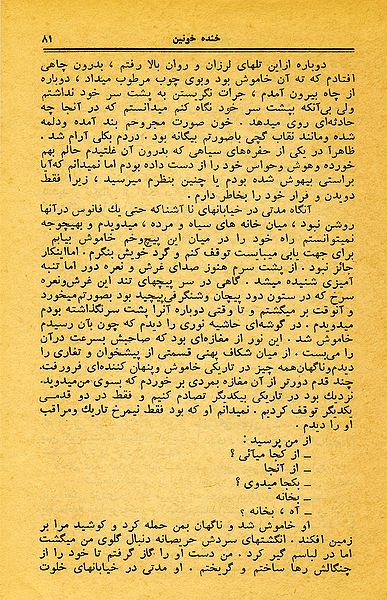 خنده خونین ۸۱
دوباره ازاین تلهای لرزان و روان بالا رفتم ، بدرون چاهی
افتادم که ته آن خاموش بود وبوی چوب مرطوب میداد ، دوباره
از چاه بیرون آمدم ، جرات نگریستن به پشت سر خود نداشتم
ولی بی‌آنکه بپشت سر خود نگاه کنم میدانستم که در آنجا چه
حادثه‌ای روی میدهد . خون صورت مجروحم بند آمده ودلمه
شده ومانند نقاب گچی باصورتم بیگانه بود . دردم بکلی آرام شد .
ظاهرا در یکی از حفره‌های سیاهی که بدرون آن غلتیدم حالم بهم
خورده وهوش وحواس خود را از دست داده بودم اما نمیدانم که‌آیا
براستی بیهوش شده بودم یا چنین بنظرم میرسید ، زیرا فقط
دویدن و فرار خود را بخاطر دارم .
آنگاه مدتی در خیابانهای ناآشناکه حتی یك فانوس درآنها
روشن نبود ، میان خانه های سیاه و مرده ، میدویدم و بهیچوجه
نمیتوانستم راه خود را در میان این پیچ‌وخم خاموش بیابم .
برای جهت یابی میبایست توقف کنم و گرد خویش بنگرم . امااینکار
جائز نبود . از پشت سرم هنوز صدای غرش و نعره دور اما تنبه
آمیزی شنیده میشد . گاهی در سر پیچهای تند این غرش‌ونعره
سرخ که در ستون دود پیچان وشنگرفی‌پیچید بود بصورتم‌میخورد
و آنوقت بر میگشتم و تا وقتی دوباره آنرا پشت سرنگذاشته بودم
میدویدم . در گوشه‌ای حاشیه نوری را دیدم که چون بآن رسیدم
خاموش شد . این نور از مغازه‌ای بود که صاحبش بسرعت درآن
را می‌بست . از میان شکاف پهنی قسمتی از پیشخوان و تغاری را
دیدم‌وناگهان‌همه چیز در تاریکی خاموش وپنهان کننده‌ای فرورفت.
چند قدم دورتر از آن مغازه بمردی بر خوردم که بسوی من‌میدوید.
نزدیك بود در تاریکی بیکدیگر تصادم کنیم و فقط در دو قدمی
یکدیگر توقف کردیم . نمیدانم او که بود فقط نیمرخ تاریك ومراقب
او را دیدم .
از من پرسید :
ــ از کجا میآئی ؟
ــ از آنجا
ــ بکجا میدوی ؟
ــ بخانه
ــ آه ، بخانه ؟
او خاموش شد و ناگهان بمن حمله کرد و کوشید مرا بر
زمین افکند . انگشتهای سردش حریصانه دنبال گلوی من میگشت
اما در لباسم گیر کرد . من دست او را گاز گرفتم تا خود را از
چنگالش رها ساختم و گریختم . او مدتی در خیابانهای خلوت